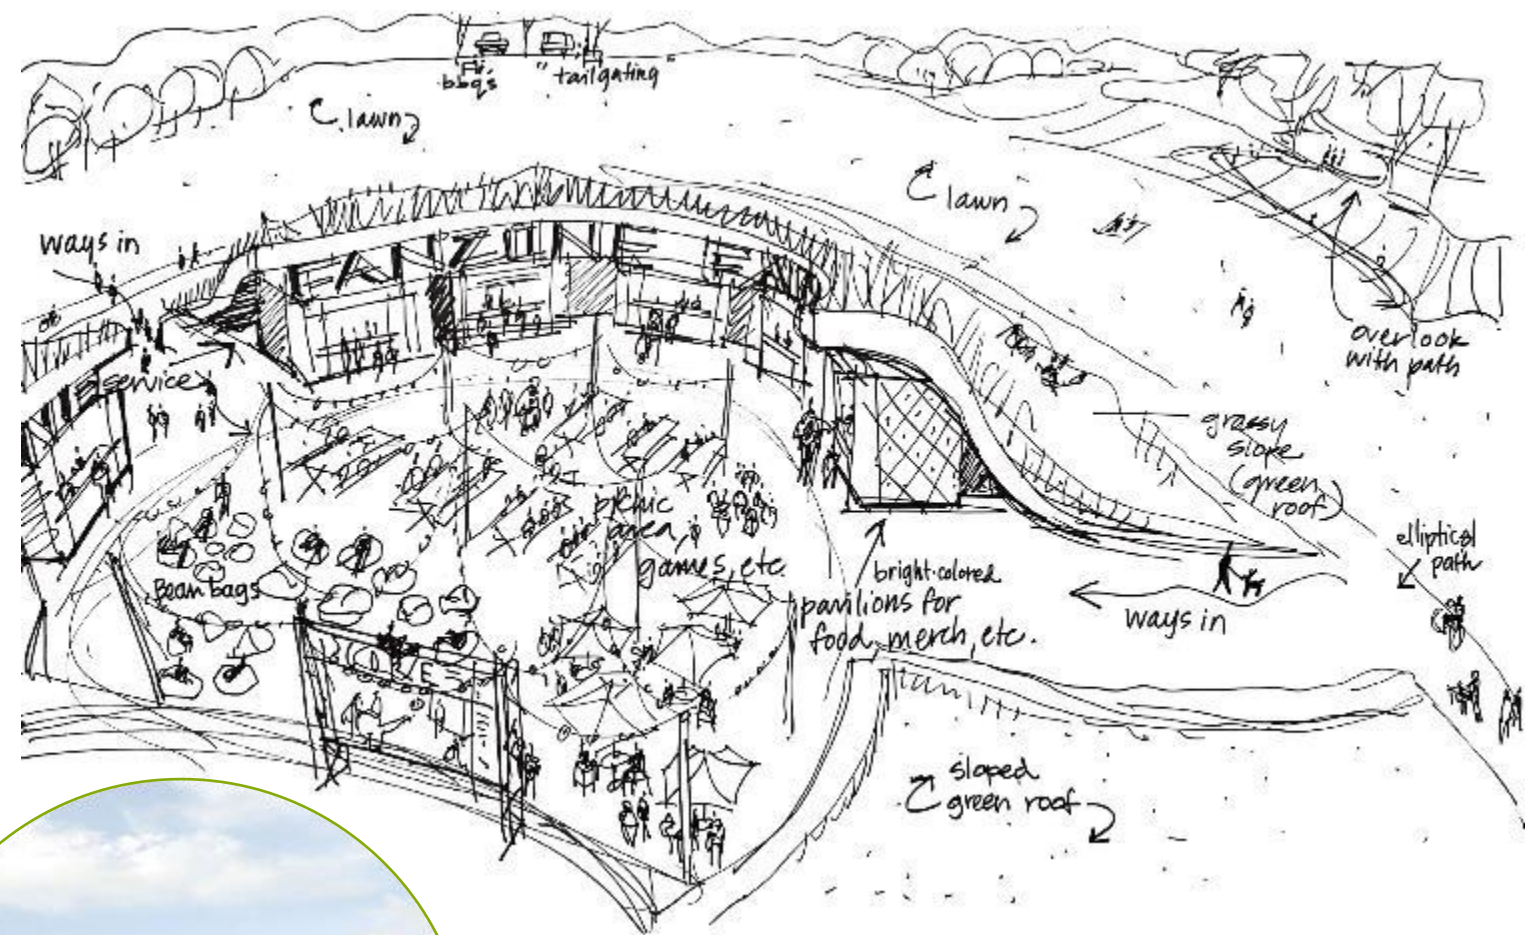 bbqs
"tailgating"
lawn
lawn
ways in
FANZONE
service
overlook
with path
grassy
slope
(green
roof)
elliptical
path
picnic
area,
games, etc.
Bean bags
bright-colored
pavilions for
food, merch, etc.
ways in
sloped
green roof